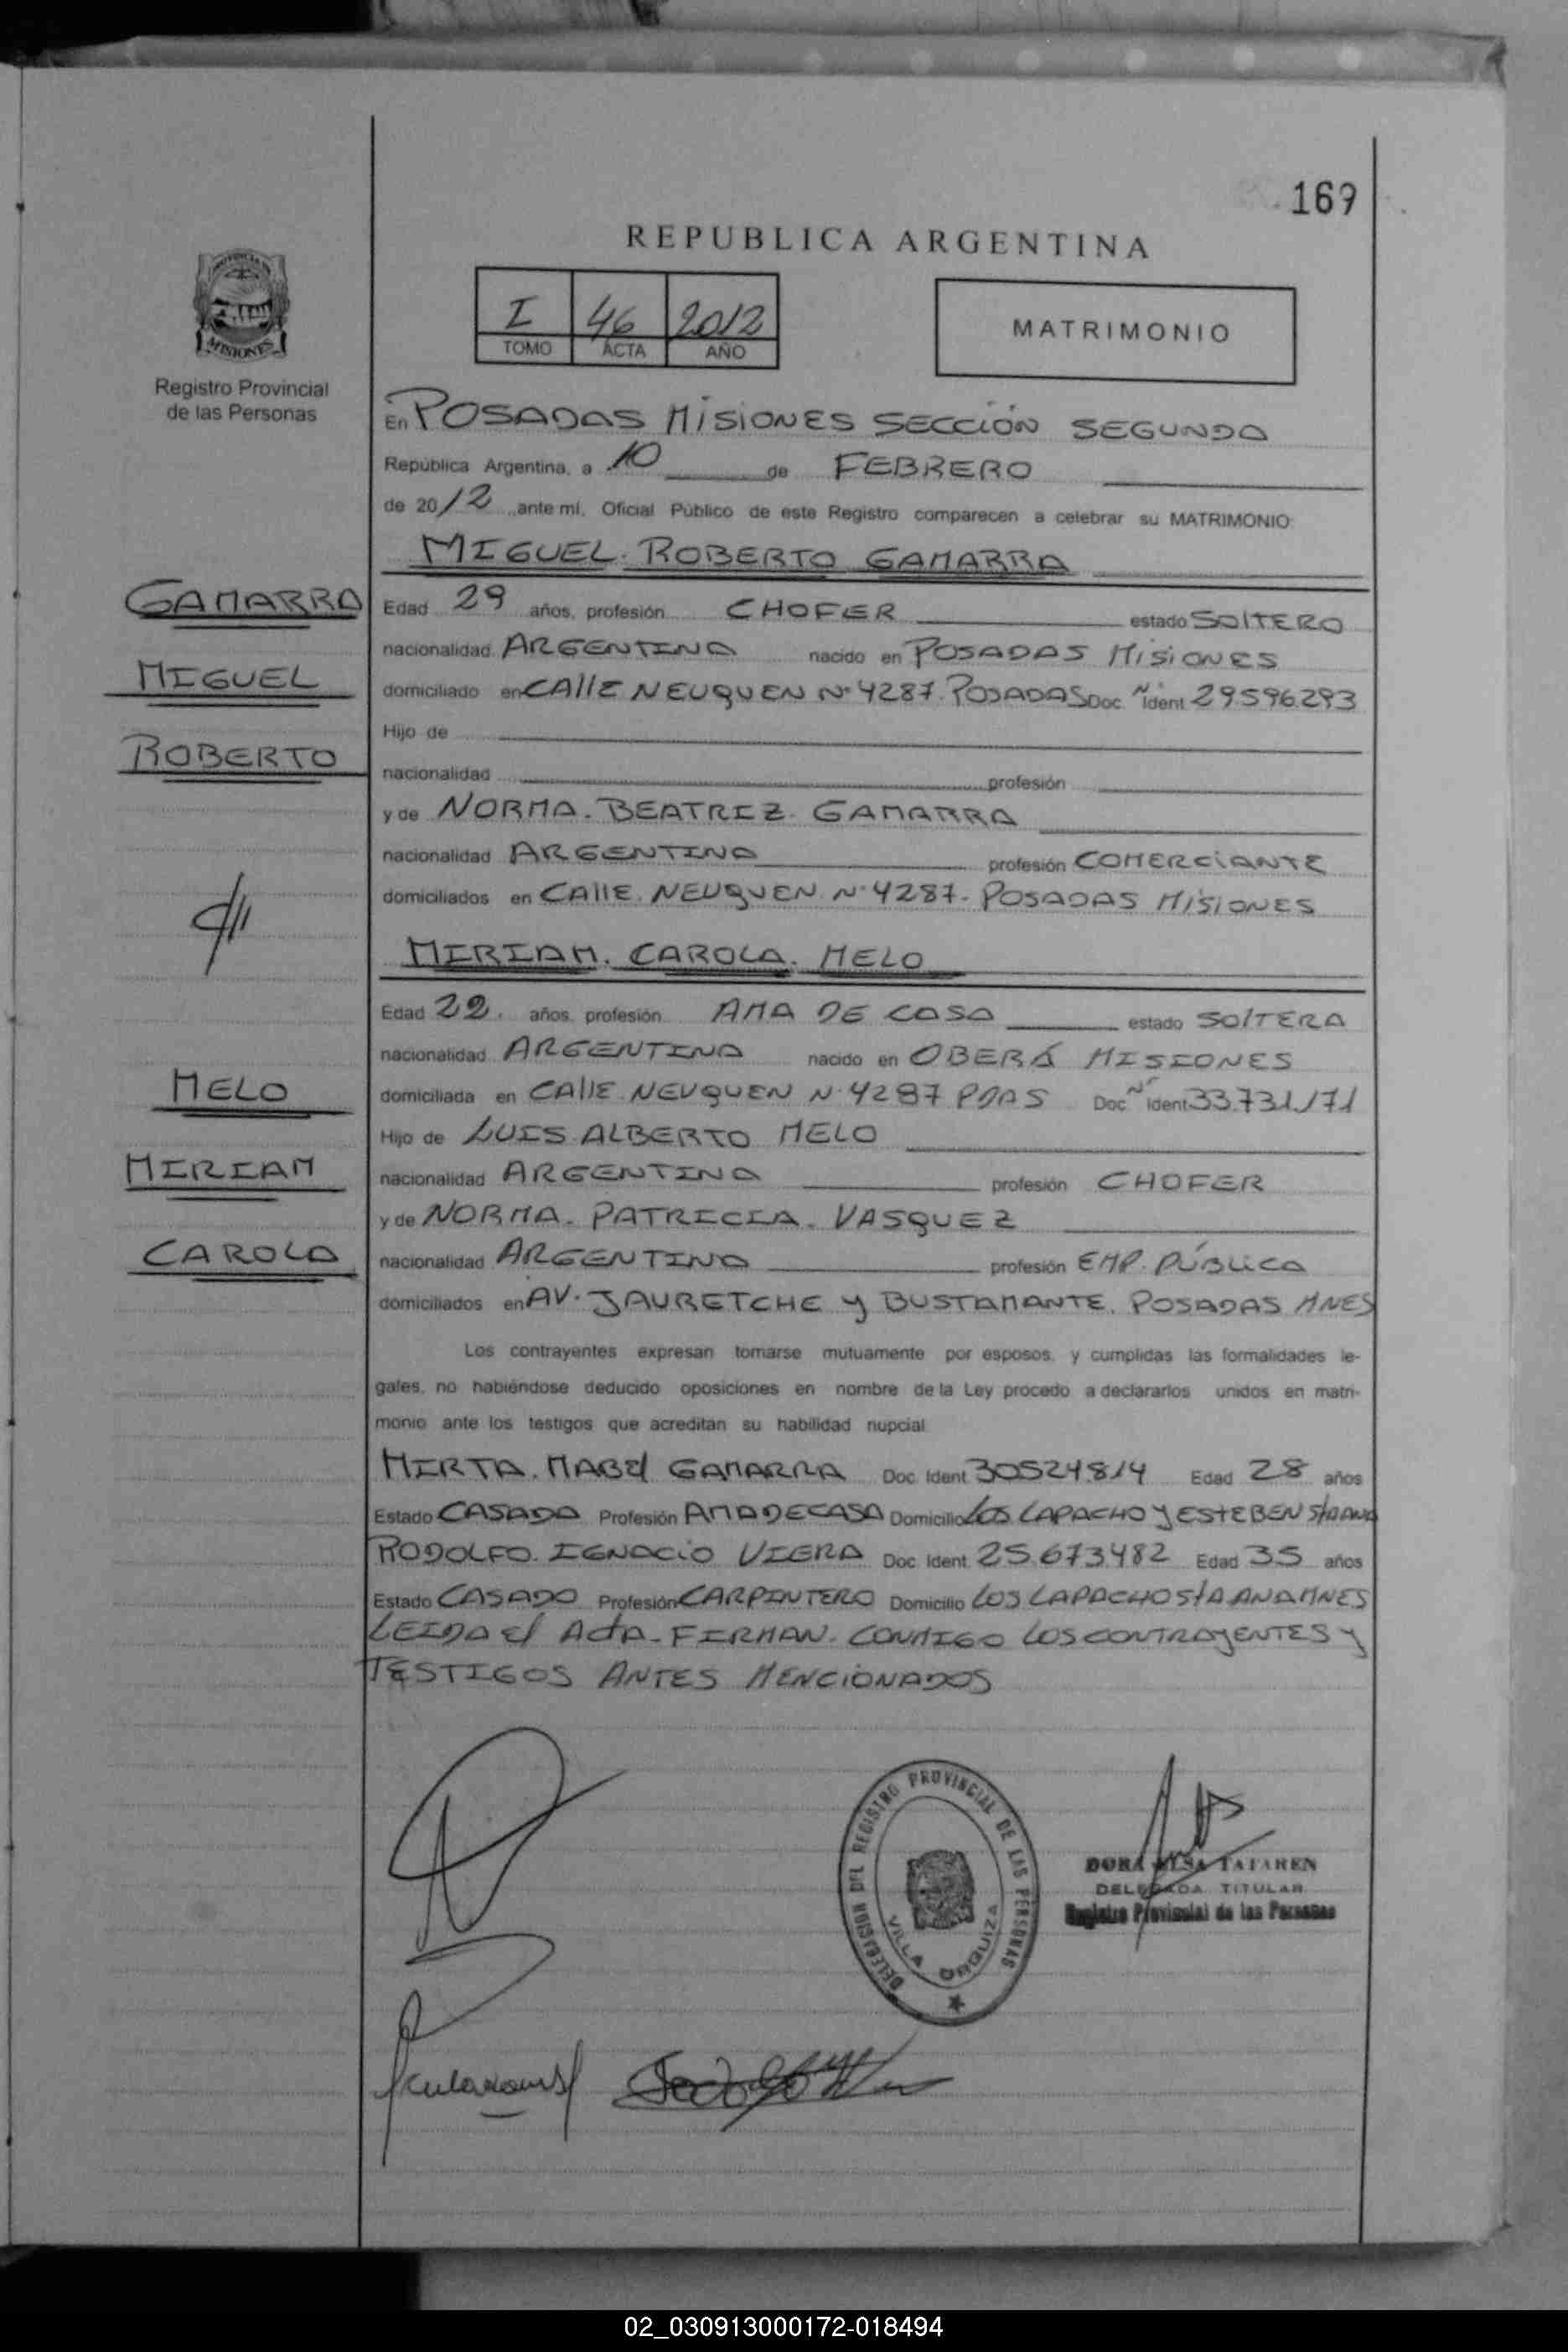 169
REPUBLICA ARGENTINA
I 46 2012
TOMO ACTA AÑO
MATRIMONIO
MISIONES
Registro Provincial
de las Personas
En POSADAS MISIONES SECCIÓN SEGUNDA
República Argentina, a 10 de FEBRERO
de 2012 ante mí, Oficial Público de este Registro comparecen a celebrar su MATRIMONIO:
MIGUEL. ROBERTO GAMARRA
GAMARRA
MIGUEL
ROBERTO
Edad 29 años, profesión CHOFER estado SOLTERO
nacionalidad ARGENTINA nacido en POSADAS MISIONES
domiciliado en CALLE NEUQUEN Nº 4287. POSADAS Doc. Nº Ident 29.596.293
Hijo de
nacionalidad profesión
y de NORMA. BEATRIZ. GAMARRA
nacionalidad ARGENTINA profesión COMERCIANTE
domiciliados en CALLE. NEUQUEN. Nº 4287- POSADAS MISIONES
MIRIAM. CAROLA. MELO
MELO
MIRIAM
CAROLA
Edad 22. años, profesión AMA DE CASA estado SOLTERA
nacionalidad ARGENTINA nacido en OBERÁ MISIONES
domiciliada en CALLE. NEUQUEN N. 4287 PDAS Doc. Nº Ident 33.731.171
Hijo de LUIS ALBERTO MELO
nacionalidad ARGENTINA profesión CHOFER
y de NORMA. PATRICIA. VASQUEZ
nacionalidad ARGENTINA profesión EMP. PÚBLICA
domiciliados en AV. JAURETCHE Y BUSTAMANTE. POSADAS MNES
Los contrayentes expresan tomarse mutuamente por esposos, y cumplidas las formalidades le-
gales, no habiéndose deducido oposiciones en nombre de la Ley procedo a declararlos unidos en matri-
monio ante los testigos que acreditan su habilidad nupcial
MIRTA. MABEL GAMARRA Doc. Ident. 30524.814 Edad 28 años
Estado CASADA Profesión AMA DE CASA Domicilio LOS LAPACHO Y ESTEBEN S/A ANA
RODOLFO. IGNACIO VIERA Doc. Ident. 25.673.482 Edad 35 años
Estado CASADO Profesión CARPINTERO Domicilio LOS LAPACHO S/A ANA MNES
LEIDA EL ACTA- FIRMAN. CONMIGO LOS CONTRAYENTES Y
TESTIGOS ANTES MENCIONADOS
DELEGACION DEL REGISTRO PROVINCIAL DE LAS PERSONAS
VILLA URQUIZA
DORA TATAREN
DELEGADA TITULAR
Registro Provincial de las Personas
02_030913000172-018494